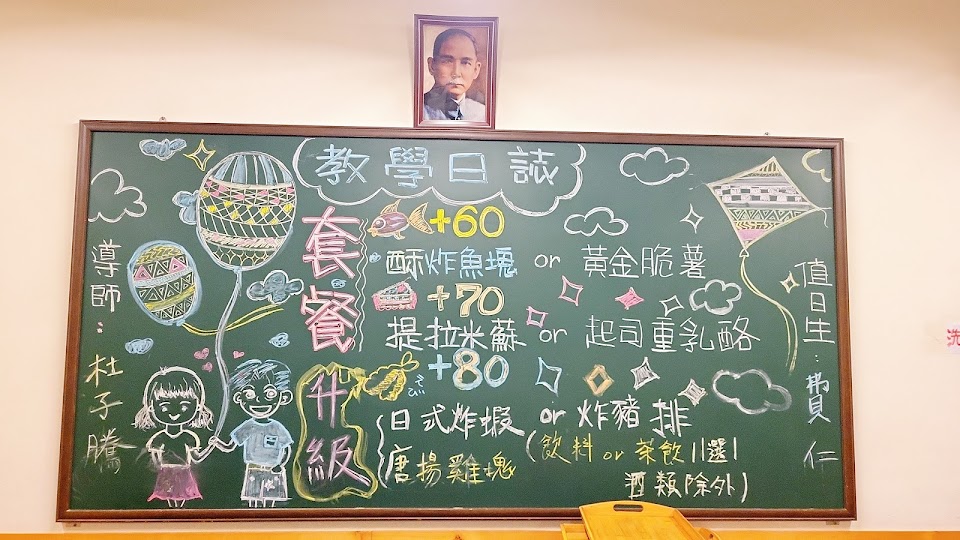 教學日誌
導師：杜子騰
套餐升級
+60
酥炸魚塊 or 黃金脆薯
+70
提拉米蘇 or 起司重乳酪
+80
日式炸蝦 or 炸豬排
唐揚雞塊
(飲料 or 茶飲 || 選 |
酒類除外)
值日生：費仁
洗